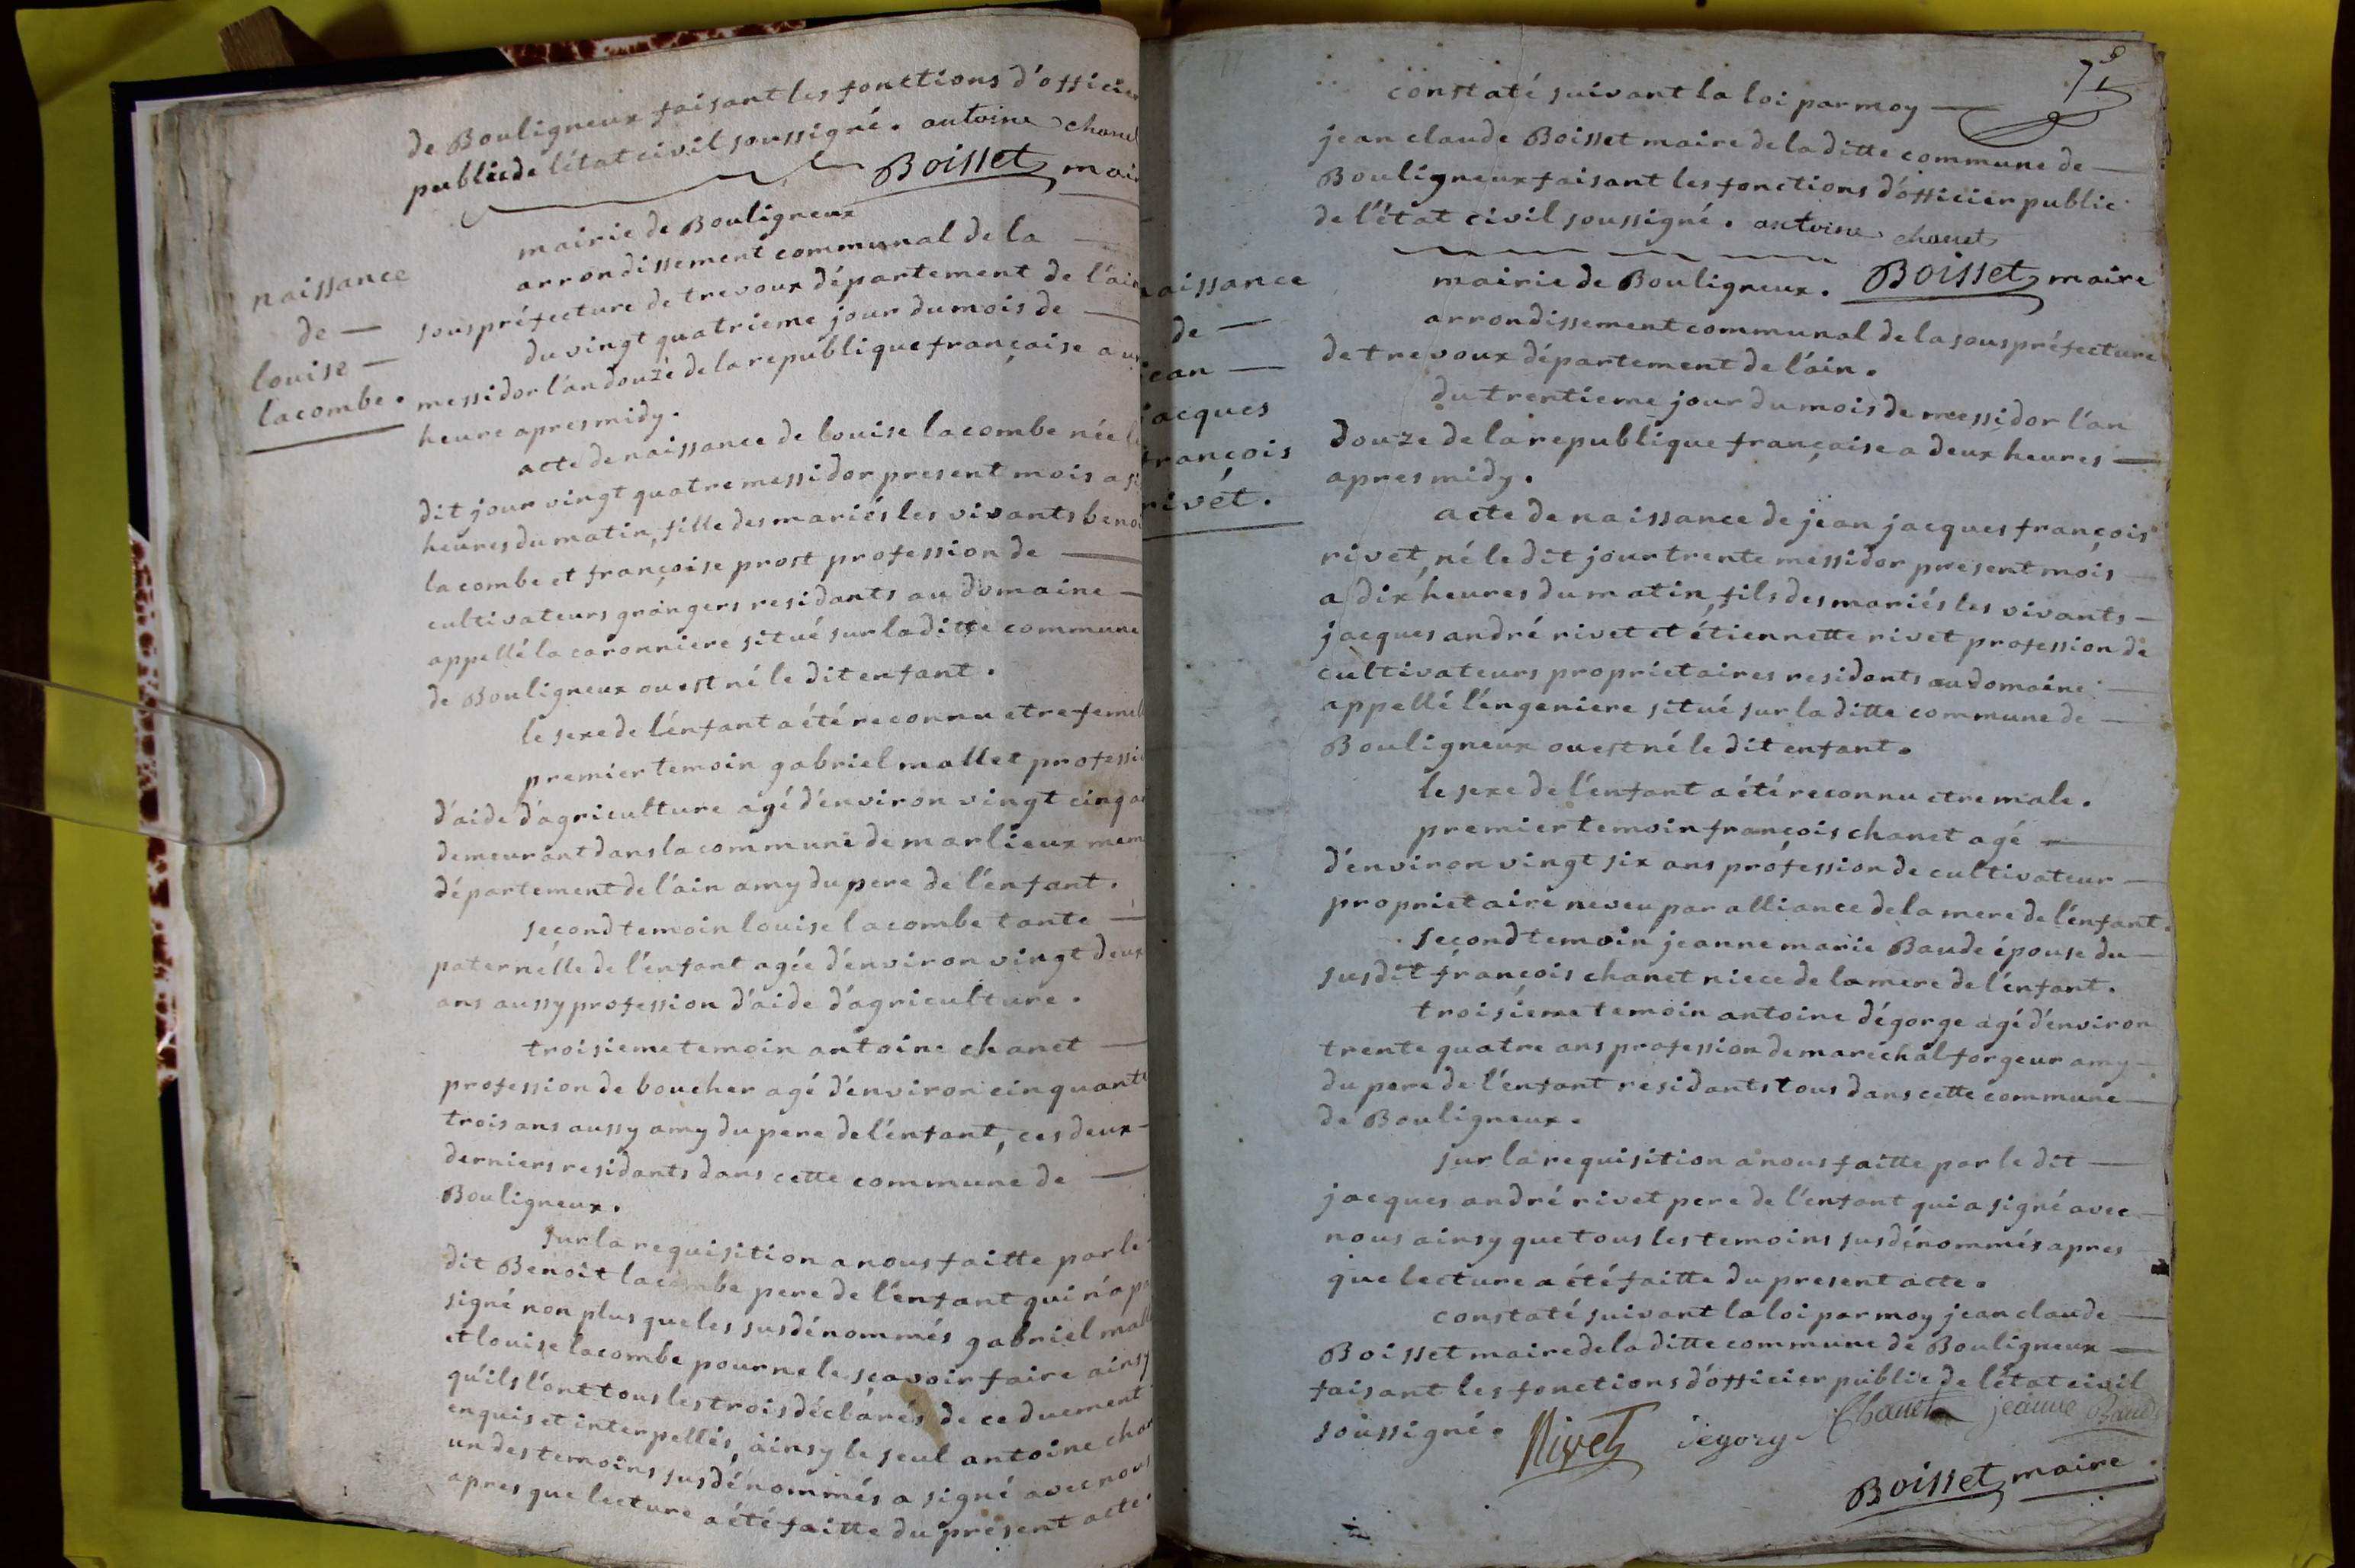 de Bouligneux faisant les fonctions d'officier
public de l'état civil soussigné. antoine chanet
Boisset mair
naissance
de —
louise —
lacombe.
mairie de Bouligneux
arrondissement communal de la —
souspréfecture de trevoux département de l'ain
du vingt quatrieme jour du mois de —
messidor l'an douze de la republique française a un
heure apres midy.
acte de naissance de louise lacombe née le
dit jour vingt quatre messidor present mois a si
heures du matin, fille des mariés les vivants benoi
lacombe et françoise prost profession de —
cultivateurs grangers residants au domaine —
appellé la caronniere situé sur la ditte commune
de Bouligneux ou est né le dit enfant.
le sexe de l'enfant a été reconnu etre femell
premier temoin gabriel mallet professi
d'aide d'agriculture agé d'environ vingt cinq an
demeurant dans la commune de marlieux mem
département de l'ain amy du pere de l'enfant.
second temoin louise lacombe tante —
paternélle de l'enfant agée d'environ vingt deux
ans aussy profession d'aide d'agriculture.
troisieme temoin antoine chanet —
profession de boucher agé d'environ cinquante
trois ans aussy amy du pere de l'enfant, ces deux —
derniers residants dans cette commune de —
Bouligneux.
sur la requisition a nous faitte par le
dit Benoit lacombe pere de l'enfant qui n'a pa
signé non plus que les susdénommés gabriel mall
et louise lacombe pour ne le sçavoir faire ainsy
qu'ils l'ont tous les trois déclarés de ce duement
enquis et interpellés, ainsy le seul antoine chan
un des temoins susdénommés a signé avec nous
apres que lecture a été faitte du présent acte.
constaté suivant la loi par moy —
jean claude Boisset maire de la ditte commune de —
Bouligneux faisant les fonctions d'officier public
de l'état civil soussigné. antoine chanet
Boisset maire
naissance
de —
jean —
jacques
françois
rivét.
mairie de Bouligneux.
arrondissement communal de la souspréfecture
de trevoux département de l'ain.
du trentieme jour du mois de messidor l'an
douze de la republique française a deux heures —
apres midy.
acte de naissance de jean jacques françois
rivet, né le dit jour trente messidor present mois —
a dix heures du matin, fils des mariés les vivants —
jacques andré rivet et étiennette rivet profession de
cultivateurs proprietaires residants au domaine —
appellé l'éngeniere situé sur la ditte commune de —
Bouligneux ou est né le dit enfant.
le sexe de l'enfant a été reconnu etre male.
premier temoin françois chanet agé —
d'environ vingt six ans profession de cultivateur —
proprietaire neveu par alliance de la mere de l'enfant.
second temoin jeanne marie Baude épouse du —
susdit françois chanet niece de la mere de l'enfant.
troisieme temoin antoine dégorge agé d'environ
trente quatre ans profession de maréchal forgeur amy —
du pere de l'enfant residants tous dans cette commune —
de Bouligneux.
sur la requisition a nous faitte par le dit —
jacques andré rivet pere de l'enfant qui a signé avec —
nous ainsy que tous les temoins susdénommés apres
que lecture a été faitte du present acte.
constaté suivant la loi par moy jean claude —
Boisset maire de la ditte commune de Bouligneux —
faisant les fonctions d'officier public de l'état civil
soussigné. Rivet degorge Chanet jeanne Baude
Boisset maire.